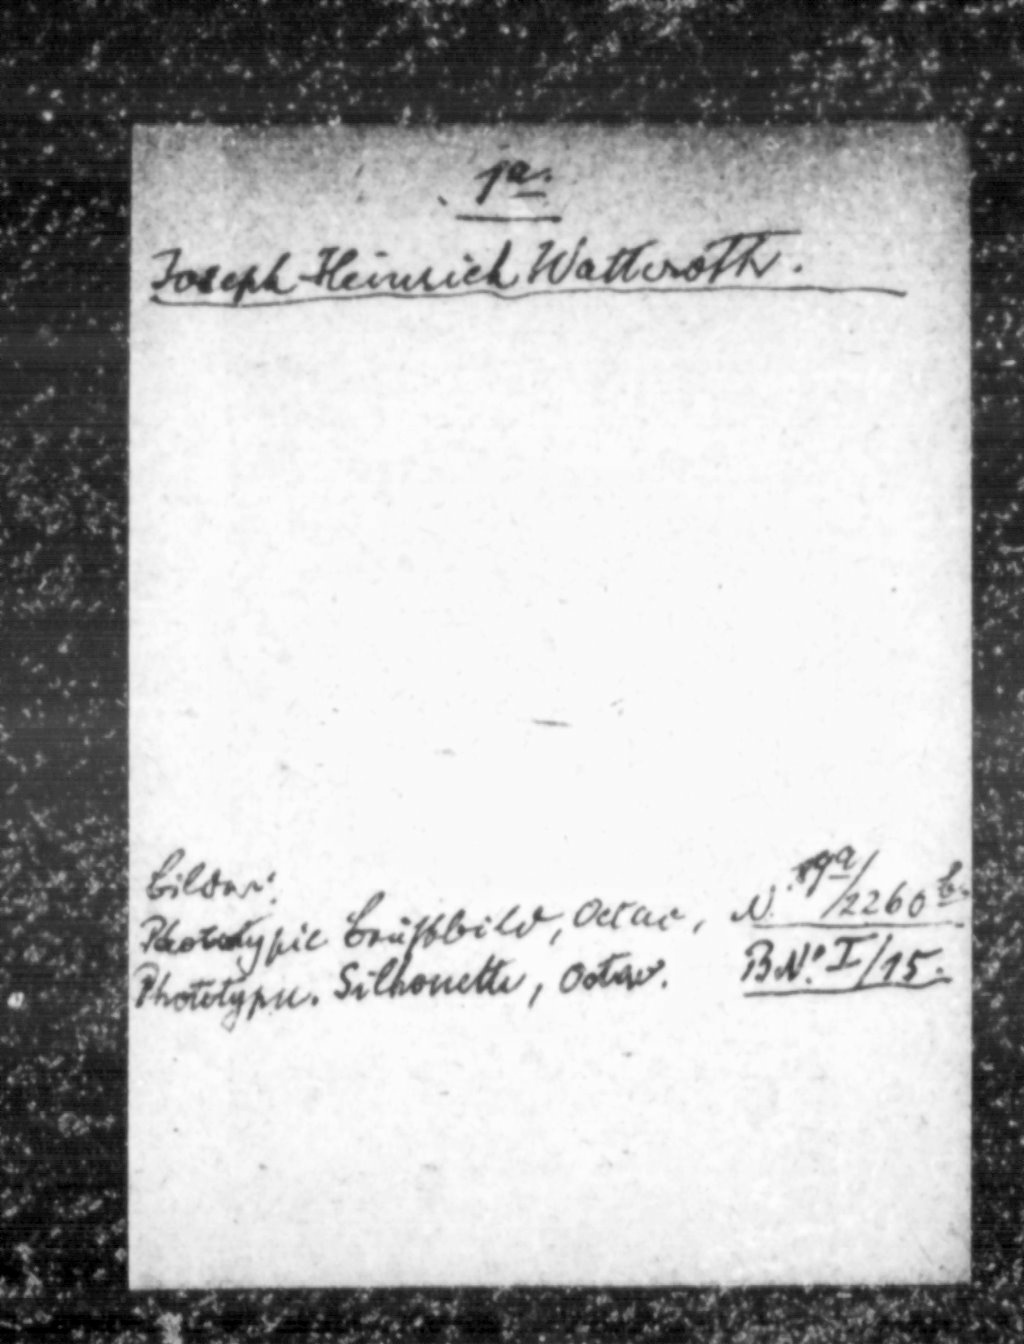 1a.
Joseph Heinrich Watteroth.
Bilder:
Phototypie Brustbild, Octav, N. 19a/2260 b.
Phototypie. Silhouette, Octav. B.No. I/15.